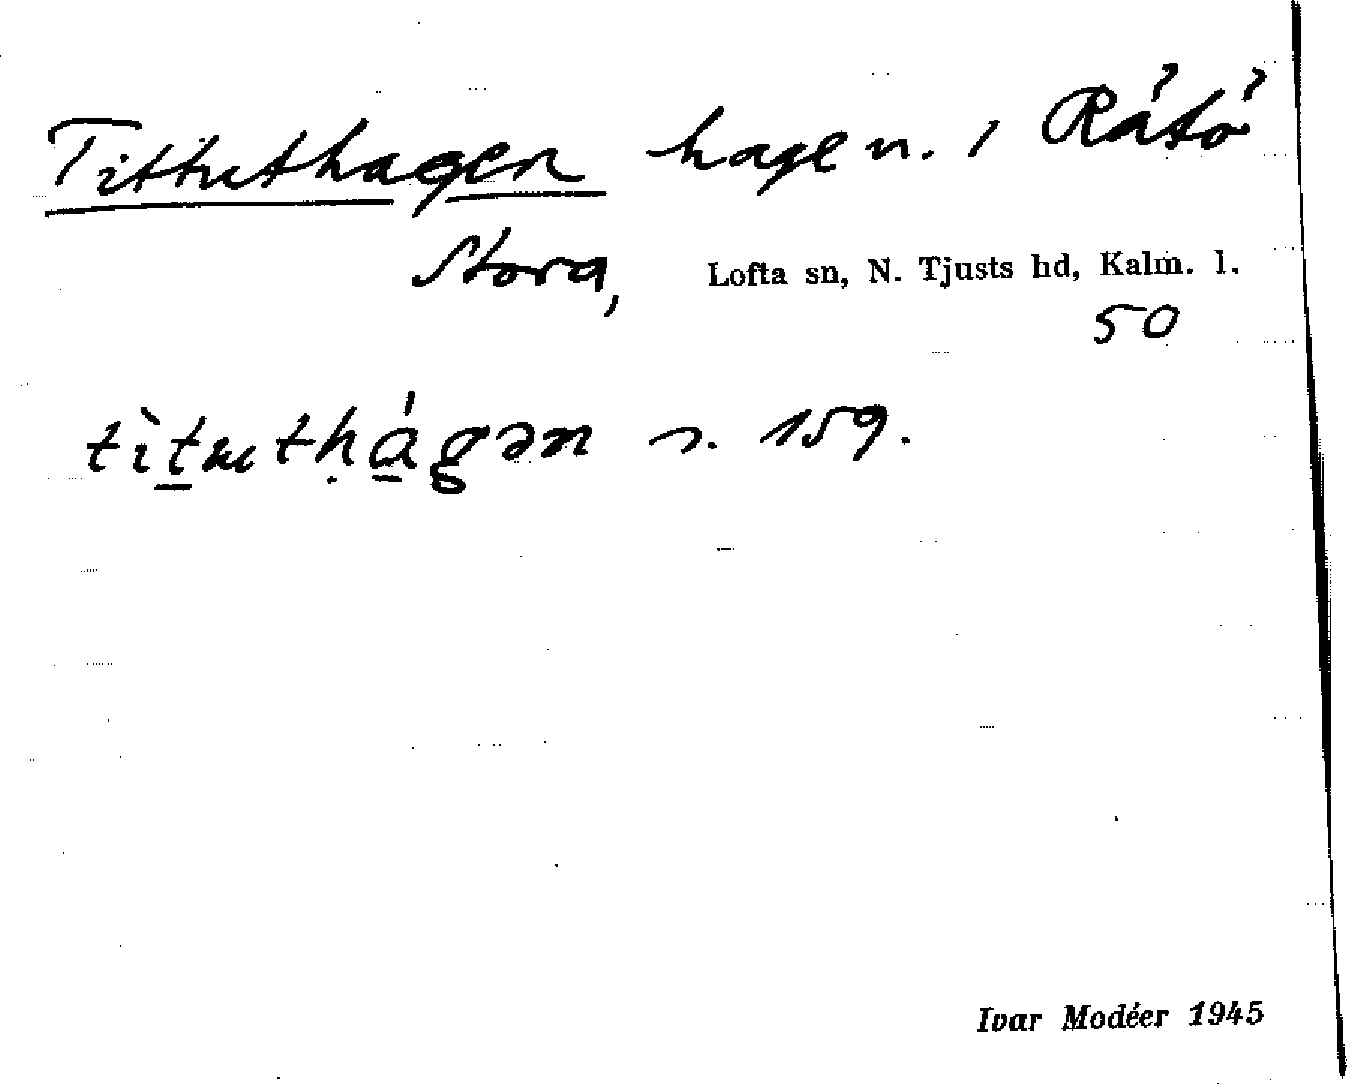 Tittuthagen hage n. i Råtö
Stora,
Lofta sn, N. Tjusts hd, Kalm. l.
50
tìt̲uthá̲gən s. 159.
Ivar Modéer 1945